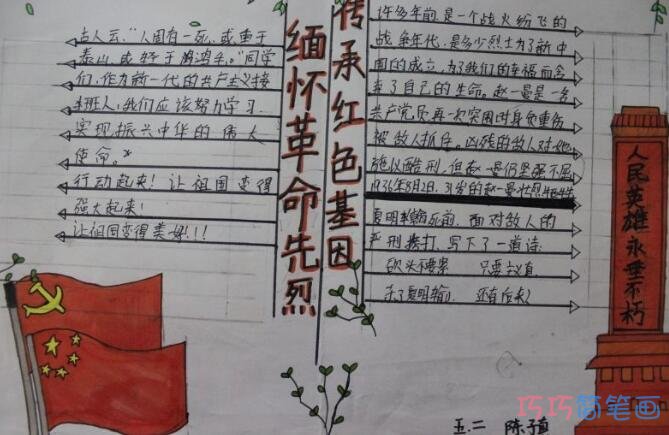 缅怀革命先烈
传承红色基因
古人云:“人固有一死,或重于
泰山,或轻于鸿毛。”同学
们,作为新一代的共产主义接
班人,我们应该努力学习
实现振兴中华的伟大
使命。”
行动起来!让祖国变得
强大起来!
让祖国变得美好!!!
许多年前,是一个战火纷飞的
战争年代,是多少烈士为了新中
国的成立,为了我们的幸福而舍
弃了自己的生命。赵一曼是一名
共产党员再一次突围时身负重伤
被敌人抓住。凶残的敌人对她
施以酷刑,但赵一曼仍坚强不屈
1936年8月2日,31岁的赵一曼壮烈牺牲
夏明翰死前,面对敌人的
严刑拷打,写下了一首诗
砍头不要紧 只要主义真
杀了夏明翰 还有后来人
人民英雄永垂不朽
五.二 陈子
巧巧简笔画